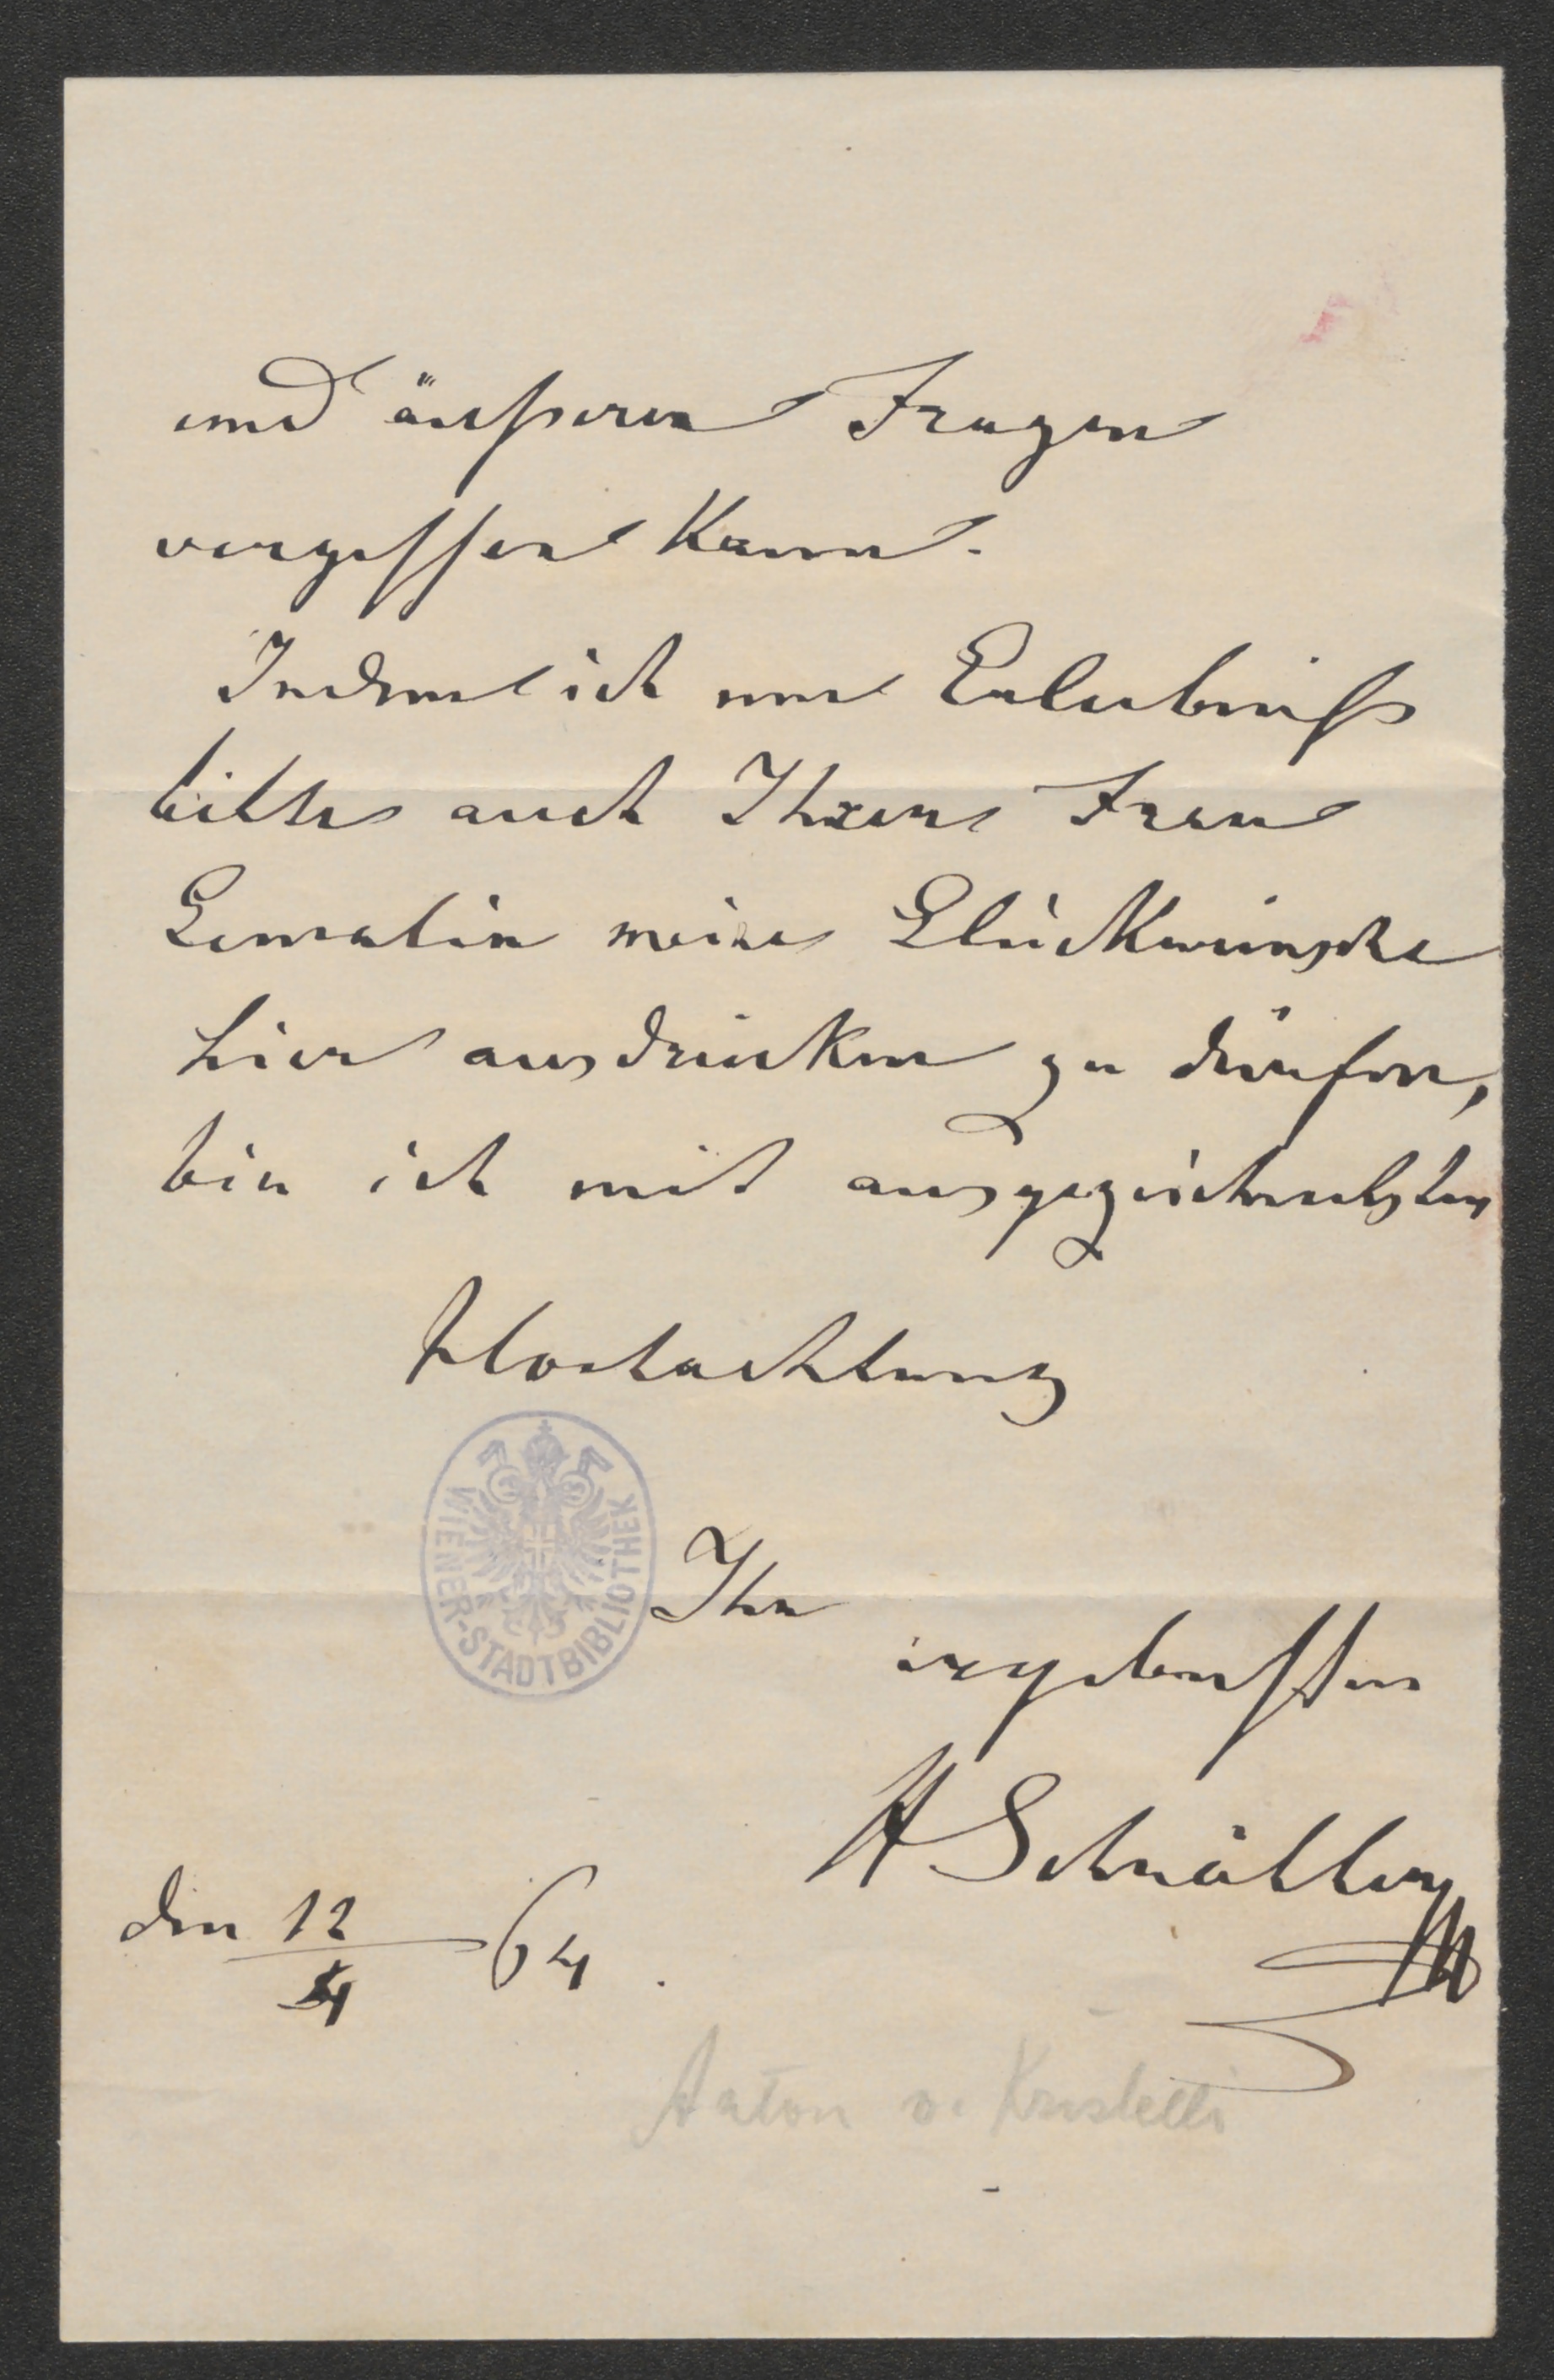 und äußeren Fragen
vergessen kann.
Indem ich um Erlaubniß
bitte auch Ihrer Frau
Gemalin meine Glückwünsche
hier ausdrücken zu dürfen,
bin ich mit ausgezeichnetster
Hochachtung
WIENER-STADTBIBLIOTHEK
Ihr
ergebenster
den 12/4 64.
Anton v.